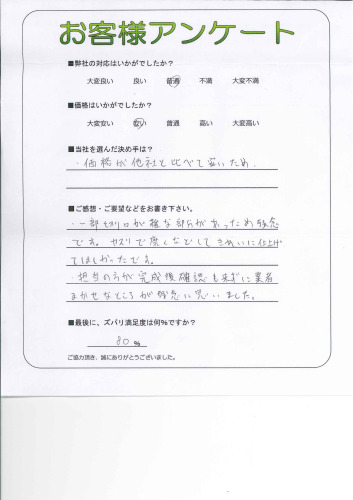 お客様アンケート
■弊社の対応はいかがでしたか？
大変良い 良い 普通 不満 大変不満
■価格はいかがでしたか？
大変安い 安い 普通 高い 大変高い
■当社を選んだ決め手は？
・価格が他社と比べて安いため.
■ご感想・ご要望などをお書き下さい。
・一部切り口が雑な部分があったため残念
です。ヤスリで磨くなどしてきれいに仕上げ
てほしかったです。
・担当の方が完成後確認も来ずに業者
まかせなところが残念に思いました。
■最後に、ズバリ満足度は何%ですか？
80 %
ご協力頂き、誠にありがとうございました。